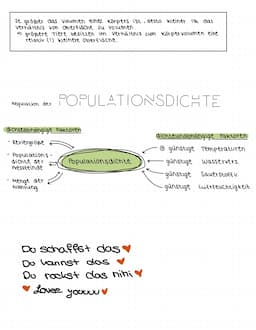 Je größer das Volumen eines Körpers ist, desto kleiner ist das
Verhältnis von Oberfläche zu Volumen
größere Tiere besitzen im Verhältnis zum Körpervolumen eine
relativ kleinere Oberfläche.
Regulation der POPULATIONSDICHTE
dichteabhängige Faktoren
dichteunabhängige Faktoren
Reviergröße
Populations-
dichte der
Fressfeinde
Menge der
Nahrung
Populationsdichte
günstige Temperaturen
günstige
günstige
günstige Luftfeuchtigkeit
Du schaffst das
Du kannst das
Du rockst das